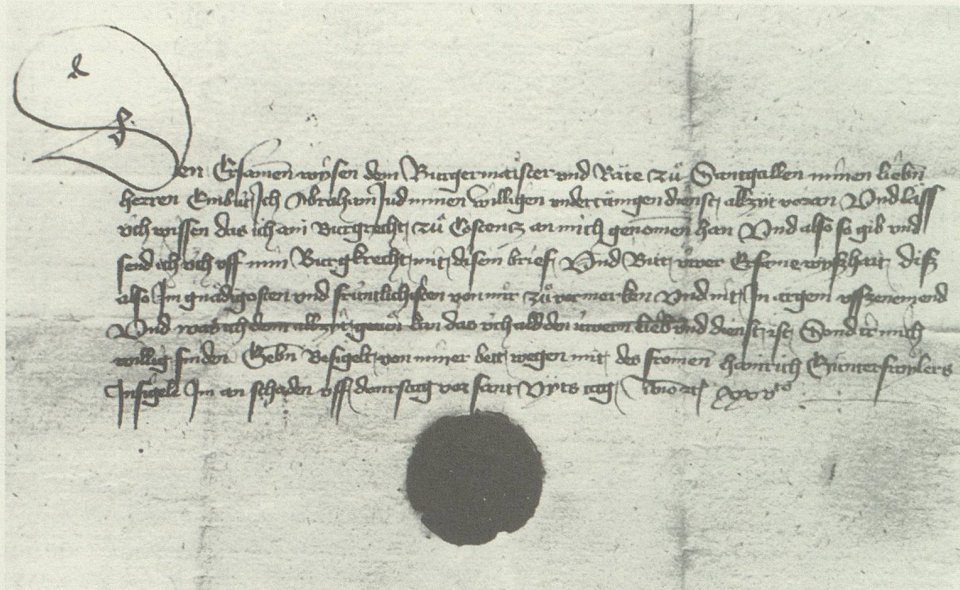 Den Ersamen wÿsen dem Burgermaister und Räte zů Santgallen minen liebñ
herren Enbüt Ich Abraham Jud minen willigen undertänigen dienst alzÿt voran Und lass
üch wissen das ich ain Burgrecht zů Costencz an mich genomen han Und also so gib und
send ich üch uff min Burgkrecht mit disem brief Und Bitt üwer Ersame wÿszhait disz
also Im gnädigosten und früntlichisten von mir zů vermerken Und nit In argem uffzenemend
Und was ich dem allzÿt getůn kan das üch ald den üwern lieb und dienst ist Sond ir mich
willig finden Gebñ Besigelt von miner bett wegen mit des fromen hainrich
Insigel Im an schaden uff donrstag vor sant Vÿts tag Anno &c xxv<sup>to</sup>